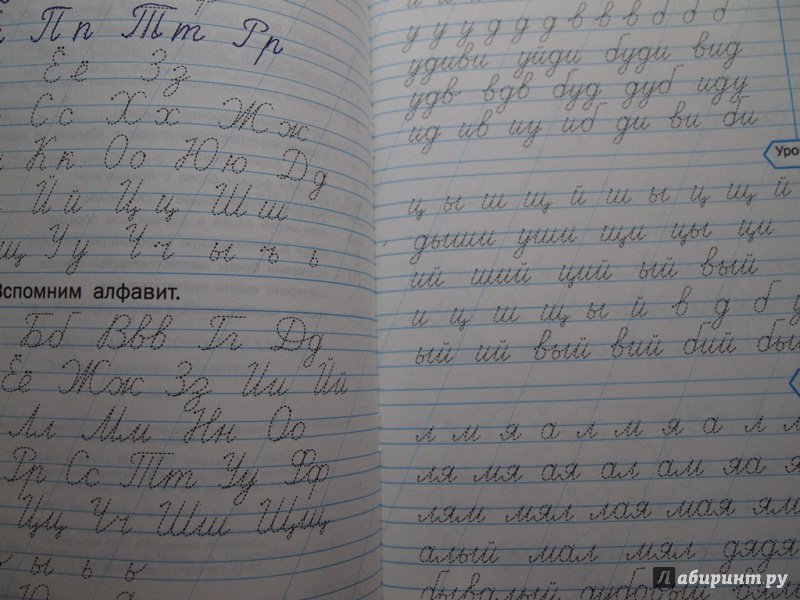 Пп Тт Рр
Ёё Зз
Сс Хх Жж
Кк Оо Юю Дд
Йй Цц Шш
щ Уу Чч ы ъ ь
Вспомним алфавит.
Бб Ввв Гг Дд
Ёё Жж Зз Ии Йй
Лл Мм Нн Оо
Рр Сс Тт Уу Фф
Цц Чч Шш Щщ
у у у д д д в в в б б б
удиви уйди буди вид
удв вдв буд дуб иду
ид ив иу иб ди ви би
Уро
ц ы ш щ й ш ы ц щ й
дыши уши щи цы ци
ий ший ций ый вый
и ц ш щ ы й в д б у
ый ий вый вий бий бы
л м я а л м я а л л
ля мя ая ал ам яа я
лям мял лая мая ям
алый мал мял дядя
бывалый дубовый вял
Лабиринт.ру